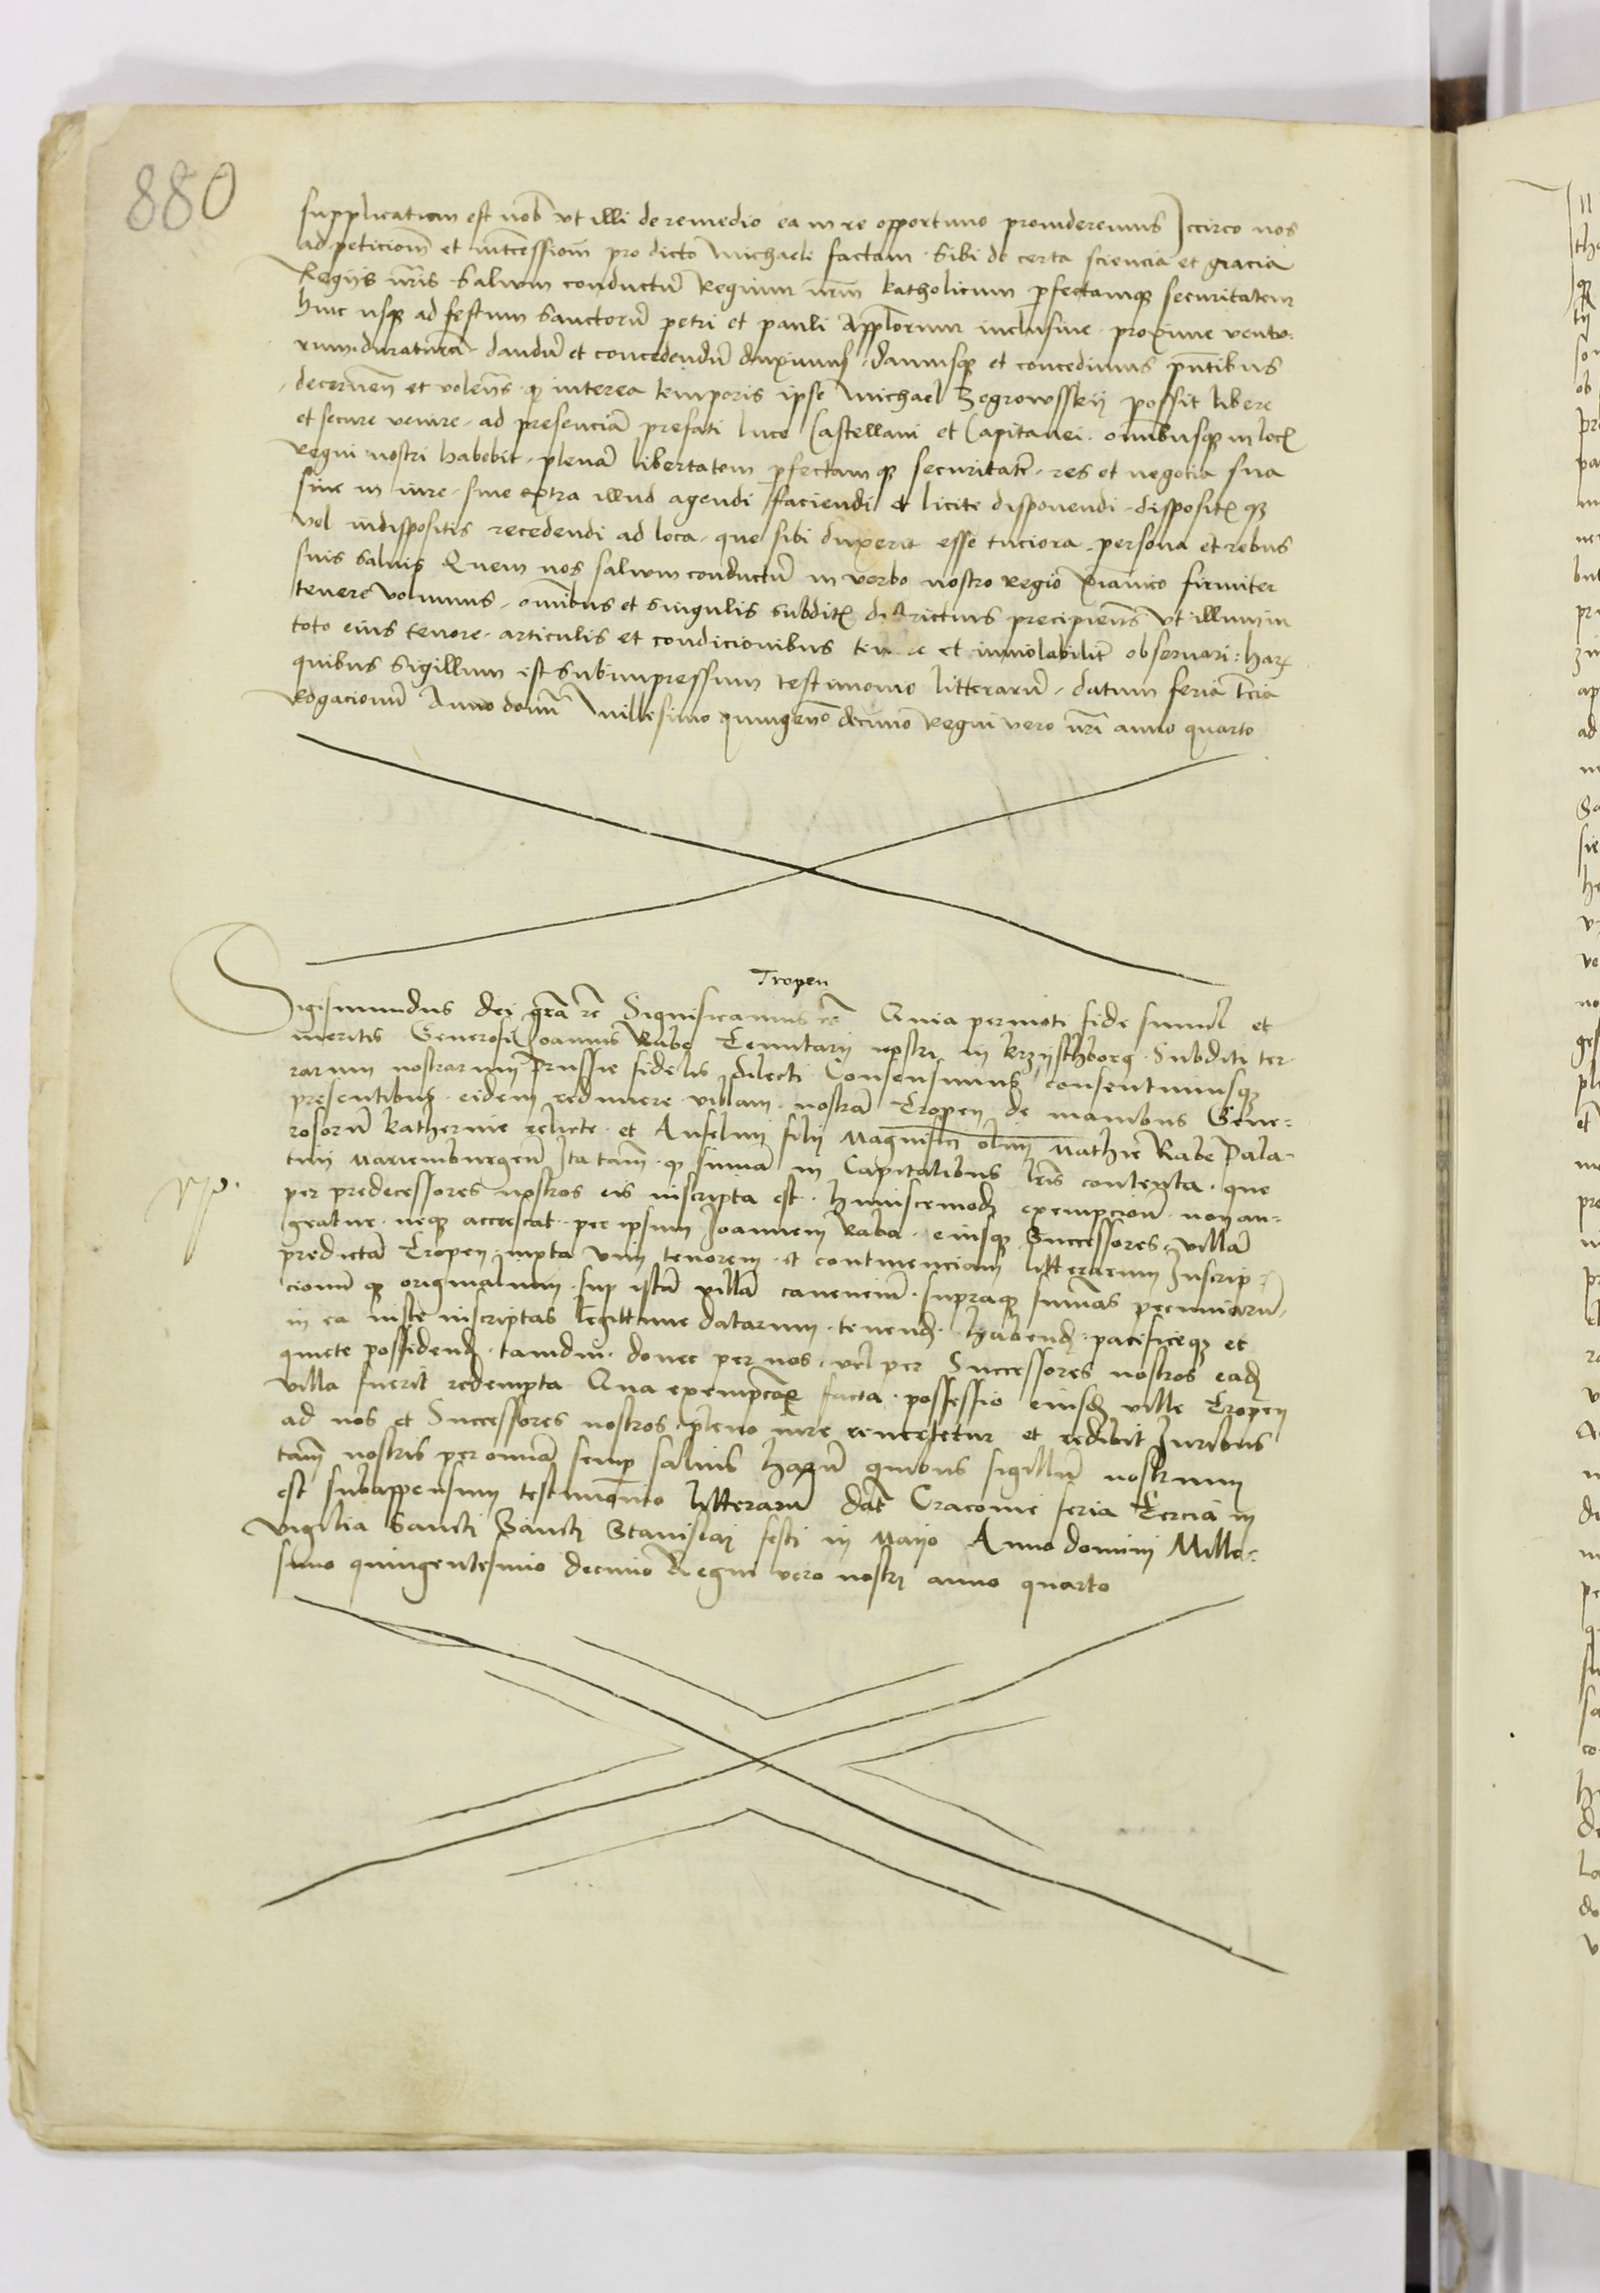 880
supplicatum est nob ut illi de remedio ea in re opportuno provideremus Iccirco nos
ad peticiom et intcessiom pro dicto Michaele factam sibi de certa sciencia et gracia
Regijs nris Salvum conductu Regium nrm katholicum pfectamq securitatem
hinc usq ad festum Sanctoru petri et pauli Applorum inclusive proxime ventu:
rum duratura dandu et concedendu duximus damusq et concedimus pntibus
decernen et volens q interea temporis ipse Michael Zegrowsskij possit libere
et secure venire ad presencia prefati luce Castellani et Capitanei omnibusq in locis
regni nostri habebit plena libertatem pfectamq securitate res et negocia sua
sive in iure sive extra illud agendi faciendi et licite disponendi dispositisq
vel indispositis recedendi ad loca que sibi duxerit esse tuciora persona et rebus
suis salvis Quem nos salvum conductu in verbo nostro regio firmiter
tenere volumus omibus et singulis subditis districtius precipiens ut illum in
toto eius tenore articulis et condicionibus et inviolabilit observari: har
quibus Sigillum est subimpressum testimonio litteraru datum feria tcia
Rogacionu Anno domi Millesimo quingeno decimo Regni vero nri anno quarto
Tropen
Sigismundus dei gra rc Significamus rc Quia permoti fide simul et
meritis Generosi Joannis Rabe Tenutarij nostri in krzijschborg Subditi ter
rarum nostrarum Prussie fidelis dilecti Consensimus consentimusq
presentibus eidem redimere villam nostra Tropen de manibus Gene=
rosoru katherine relicte et Anselmi filij Magnifici olim Mathie Rabe Pala
tini Mariemburgen Ita tam q suma in Capitalibus lris contenta que
per predecessores nostros eis inscripta est huiuscemodi exempcion non au=
geatur neq accrescat per ipsum Joannem Raba eiusq Successores villa
predicta Tropen iuxta vim tenorem et continenciam litterarum Inscrip=
cionu q originalium sup ista villa suprasq sumas pecuniaru
in ea iuste inscriptas legittime datarum tenend habend pacificeq et
quiete possidend tamdiu donec per nos vel per Successores nostros ead
villa fuerit redempta Qua exempcoe facta possessio eiusd ville Tropen
ad nos et Successores nostros pleno iure revertetur et redibit Juribus
tam nostris per omnia semp salvis haru quibus sigillu nostrum
est subappensum testimonio litteraru dat Cracovie feria Tercia in
vigilia Sancti Sancti Stanislai festi in Maijo Anno domini Mille=
simo quingentesimo decimo Regni vero nostri anno quarto